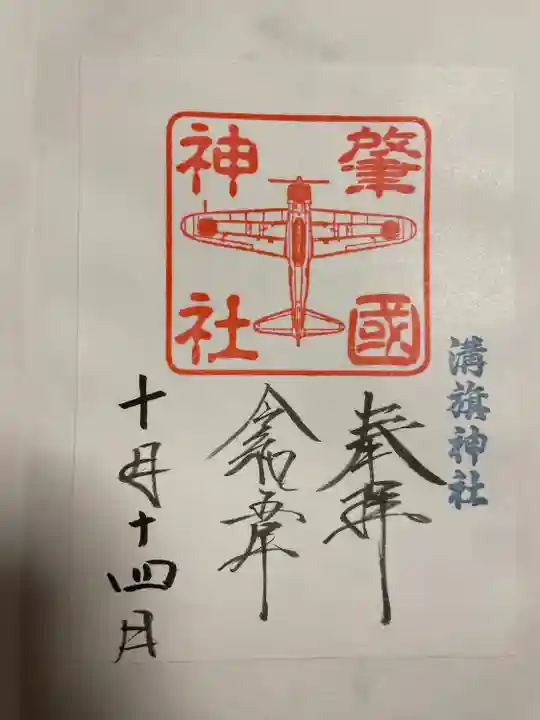 肇國
神社
溝旗神社
奉拝
令和五年
十月十四日